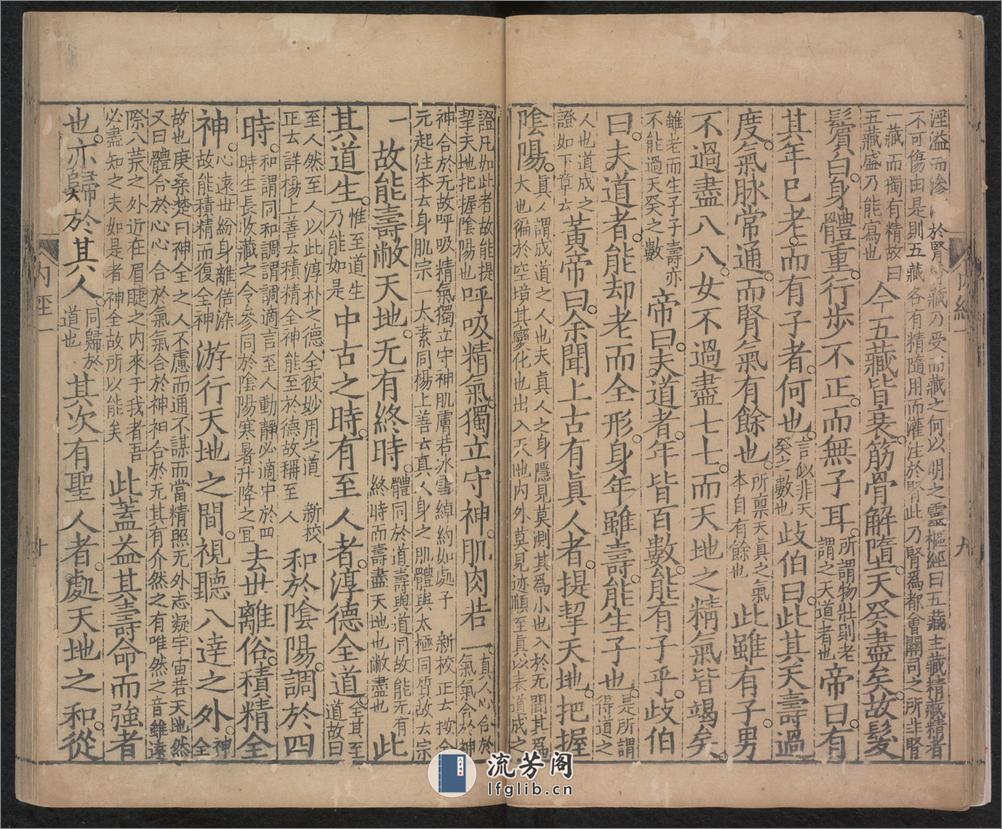 淫溢而滲 於腎腎藏乃受而藏之何以明之靈樞經曰五藏主藏精藏精者
不可傷由是則五藏各有精隨用而灌注於腎此乃腎爲都會關司之所非腎
一藏而獨有精故曰
五藏盛乃能寫也
今五藏皆衰筋骨解墮天癸盡矣故髮
鬢白身體重行步不正而無子耳
所謂物壯則老
謂之天道者也
帝曰有
其年已老而有子者何也
言似非天
癸之數也
岐伯曰此其天壽過
度氣脉常通而腎氣有餘也
所禀天真之氣
本自有餘也
此雖有子男
不過盡八八女不過盡七七而天地之精氣皆竭矣
雖老而生子子壽亦
不能過天癸之數
帝曰夫道者年皆百數能有子乎岐伯
曰夫道者能却老而全形身年雖壽能生子也
是所謂
得道之
人也道成之
證如下章云
黃帝曰余聞上古有真人者提挈天地把握
陰陽
真人謂成道之人也夫真人之身隱見莫測其爲小也入於无間其爲
大也徧於空境其變化也出入天地内外莫見迹順至真以表道成
九
證凡如此者故能提
挈天地把握陰陽也
呼吸精氣獨立守神肌肉若
真人心合於
氣氣合於神
神合於无故呼吸精氣獨立守神肌膚若冰雪綽約如處子 新校正云按全
元起注本云身肌宗一太素同楊上善云真人身之肌體與太極同質故云宗
一
故能壽敝天地无有終時
體同於道壽與道同故能无有
終時而壽盡天地也敝盡也
此
其道生
惟至道生
乃能如是
中古之時有至人者淳德全道
全其至
道故曰
至人然至人以此淳朴之德全彼妙用之道 新校
正云詳楊上善云積精全神能至於德故稱至人
和於陰陽調於四
時
和謂同和調謂調適言至人動靜必適中於四
時生長收藏之令參同於陰陽寒暑升降之宜
去世離俗積精全
神
心遠世紛身離俗染
故能積精而復全神
游行天地之間視聽八達之外
神
全
故也庚桑楚曰神全之人不慮而通不謀而當精照无外志凝宇宙若天地然
又曰體合於心心合於氣氣合於神神合於无其有介然之有唯然之音雖遠
際八荒之外近在眉睫之内來于我者吾
必盡知之夫如是者神全故所以能矣
此蓋益其壽命而強者
也亦歸於真人
同歸於
道也
其次有聖人者處天地之和從
内經一
十
流芳阁
lfglib.com